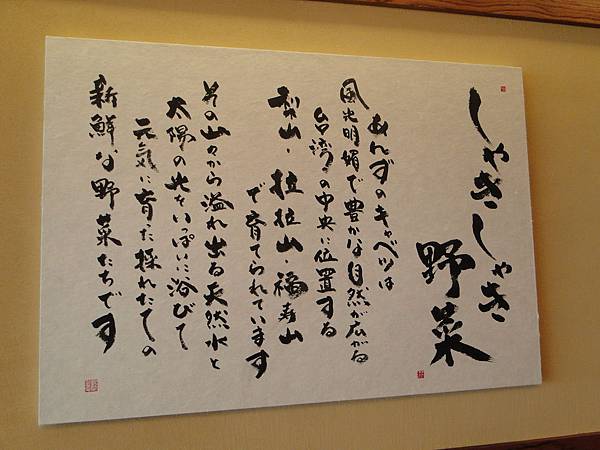 しゃきしゃき
野菜
あんずのキャベツは
風光明媚で豊かな自然が広がる
台湾の中央に位置する
梨山・拉拉山・福寿山
で育てられています
その山々から溢れ出る天然水と
太陽の光をいっぱいに浴びて
元気に育った採れたての
新鮮な野菜たちです